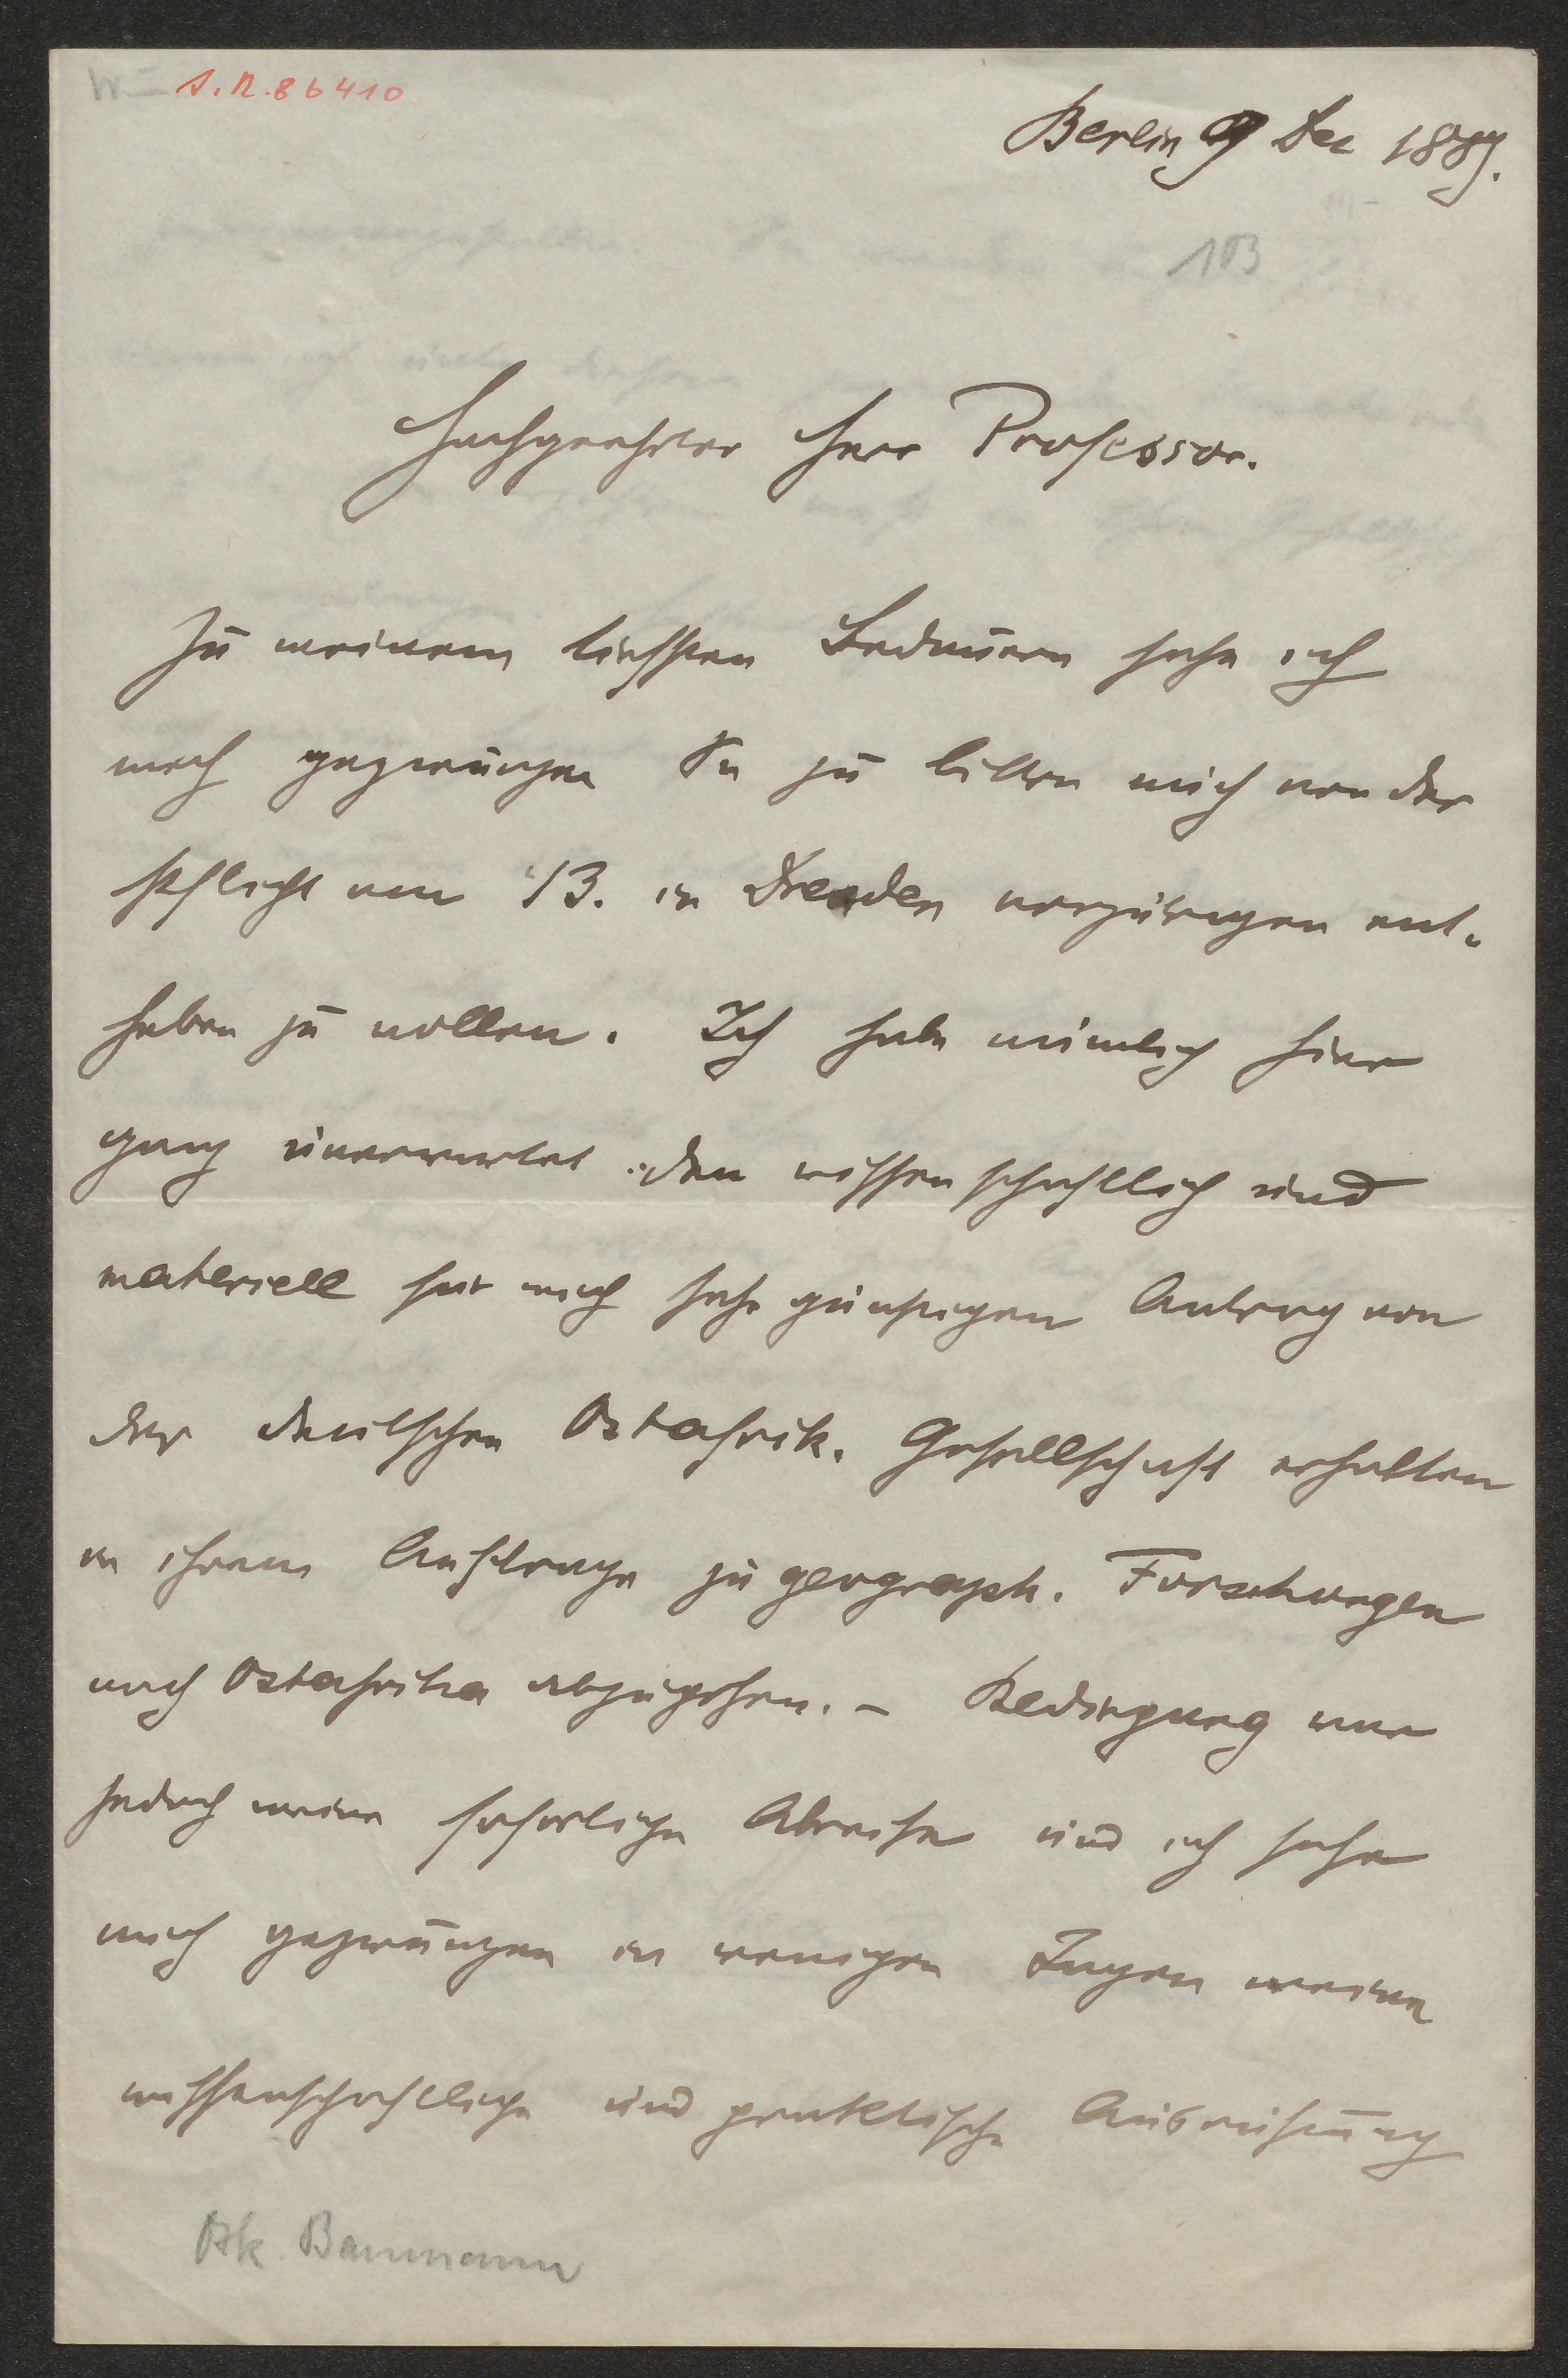 A.N. 86410
Berlin 9 Dec 1889.
103
Hochgeehrter Herr Professor.
Zu meinem tiefsten Bedauern sehe ich
mich gezwungen Sie zu bitten mich von der
Pflicht am 13. in Dresden vorzutragen ent-
heben zu wollen. Ich habe nämlich hier
ganz unerwartet den wissenschaftlich und
materiell für mich sehr günstigen Antrag von
der deutschen Ostafrik. Gesellschaft erhalten
in ihrem Auftrage zu geograph. Forschungen
nach Ostafrika abzugehen. – Bedingung war
jedoch meine sofortige Abreise und ich sehe
mich gezwungen in wenigen Tagen meine
wissenschaftliche und praktische Ausrüstung
Osk. Baumann